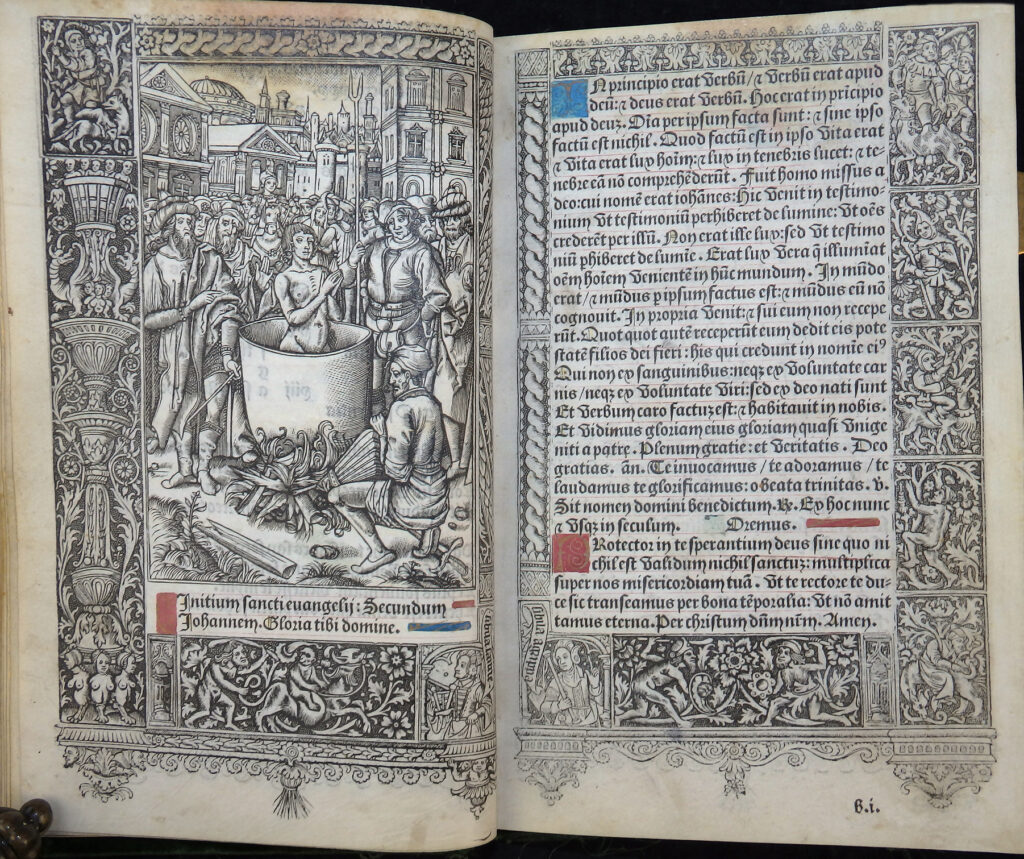 Initium sancti euangelij: Secundum
Johannem. Gloria tibi domine.
IN principio erat verbū / ⁊ verbū erat apud
deū: ⁊ deus erat verbū. Hoc erat in prīcipio
apud deuz. Oīa per ipsum facta sunt: ⁊ sine ipso
factū est nichil. Quod factū est in ipso vita erat
⁊ vita erat lux hoīm: ⁊ lux in tenebris lucet: ⁊ te-
nebre eā nō comprehēderūt. Fuit homo missus a
deo: cui nomē erat iohānes: Hic venit in testimo-
nium vt testimoniū perhiberet de lumine: vt oēs
crederēt per illū. Non erat ille lux: sed vt testimo
niū ꝑhiberet de lumīe. Erat lux vera q̄ illumīat
oēm hoīem venientē in hūc mundum. In mūdo
erat / ⁊ mūdus ꝑ ipsum factus est: ⁊ mūdus eū nō
cognouit. In propria venit: ⁊ sui eum non recepe
rūt. Quot quot autē receperūt eum dedit eis pote
statē filios dei fieri: his qui credunt in nomīe eiꝰ
Qui non ex sanguinibus: neqꝫ ex voluntate car
nis / neqꝫ ex voluntate viri: sed ex deo nati sunt
Et verbum caro factuꝫ est: ⁊ habitauit in nobis.
Et vidimus gloriam eius gloriam quasi vnige
niti a patre. Plenum gratie: et veritatis. Deo
gratias. añ. Te inuocamus / te adoramus / te
laudamus te glorificamus: o beata trinitas. v.
Sit nomen domini benedictum. ℞. Ex hoc nunc
⁊ vsqꝫ in seculum. Oremus.
PRotector in te sperantium deus sine quo ni
chil est validum nichil sanctuꝫ: multiplica
super nos misericordiam tuā. Vt te rectore te du-
ce sic transeamus per bona tēporalia: vt nō amit
tamus eterna. Per christum dn̄m nr̄m. Amen.
b.i.